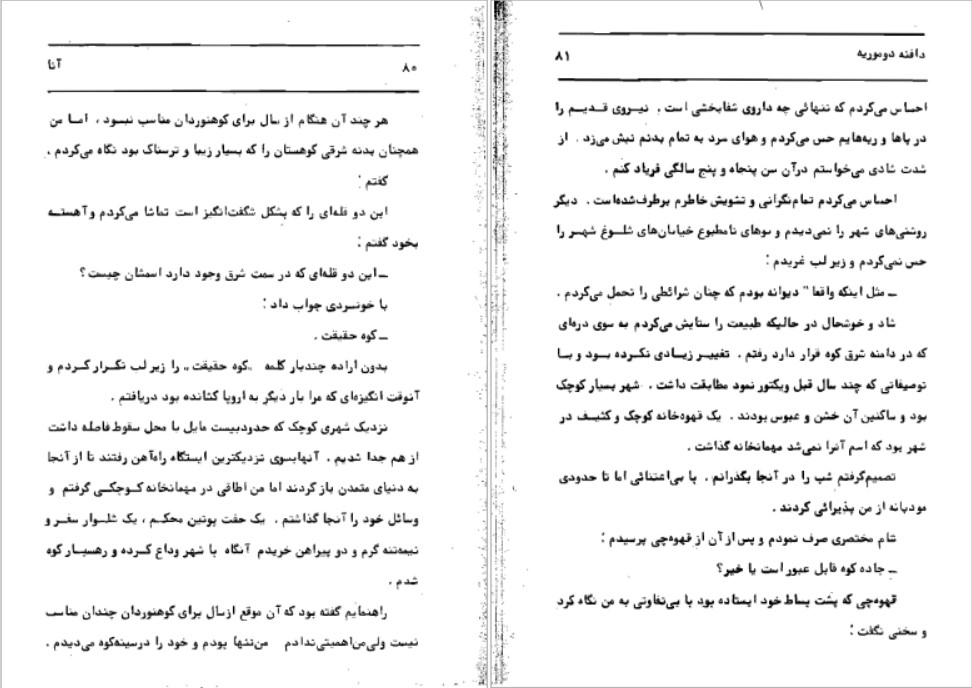 آنا ۸۰
هر چند آن هنگام از سال برای کوهنوردان مناسب نبود ، اما من
همچنان بدنه شرقی کوهستان را که بسیار زیبا و ترسناک بود نگاه می‌کردم .
گفتم :
این دو قله‌ای را که بشکل شگفت‌انگیز است تماشا می‌کردم و آهسته
بخود گفتم :
ــ این دو قله‌ای که در سمت شرق وجود دارد اسمشان چیست ؟
با خونسردی جواب داد :
ــ کوه حقیقت .
بدون اراده چندبار کلمه "کوه حقیقت" را زیر لب تکرار کردم و
آنوقت انگیزه‌ای که مرا بار دیگر به اروپا کشانده بود دریافتم .
نزدیک شهری کوچک که حدودبیست مایل با محل سقوط فاصله داشت
از هم جدا شدیم . آنهابسوی نزدیکترین ایستگاه راه‌آهن رفتند تا از آنجا
به دنیای متمدن باز گردند اما من اطاقی در مهمانخانه کوچکی گرفتم و
وسائل خود را آنجا گذاشتم . یک جفت پوتین محکم ، یک شلوار سفر و
نیمه‌تنه گرم و دو پیراهن خریدم آنگاه با شهر وداع کرده و رهسپار کوه
شدم .
راهنمایم گفته بود که آن موقع ازسال برای کوهنوردان چندان مناسب
نیست ولی‌من‌اهمیتی‌ندادم من‌تنها بودم و خود را درسینه‌کوه می‌دیدم .
دافنه دوموریه ۸۱
احساس می‌کردم که تنهائی چه داروی شفابخشی است . نیروی قدیم را
در پاها و ریه‌هایم حس می‌کردم و هوای سرد به تمام بدنم نیش می‌زد . از
شدت شادی می‌خواستم درآن سن پنجاه و پنج سالگی فریاد کنم .
احساس می‌کردم تمام‌نگرانی و تشویش خاطرم برطرف‌شده‌است . دیگر
روشنی‌های شهر را نمی‌دیدم و بوهای نامطبوع خیابان‌های شلوغ شهر را
حس نمی‌کردم و زیر لب غریدم :
ــ مثل اینکه واقعا" دیوانه بودم که چنان شرائطی را تحمل می‌کردم .
شاد و خوشحال در حالیکه طبیعت را ستایش می‌کردم به سوی دره‌ای
که در دامنه شرق کوه قرار دارد رفتم . تغییر زیادی نکرده بود و با
توصیفاتی که چند سال قبل ویکتور نمود مطابقت داشت . شهر بسیار کوچک
بود و ساکنین آن خشن و عبوس بودند . یک قهوه‌خانه کوچک و کثیف در
شهر بود که اسم آنرا نمی‌شد مهمانخانه گذاشت .
تصمیم‌گرفتم شب را در آنجا بگذرانم . با بی‌اعتنائی اما تا حدودی
مودبانه از من پذیرائی کردند .
شام مختصری صرف نمودم و پس از آن از قهوه‌چی پرسیدم :
ــ جاده کوه قابل عبور است یا خیر؟
قهوه‌چی که پشت بساط خود ایستاده بود با بی‌تفاوتی به من نگاه کرد
و سخنی نگفت :